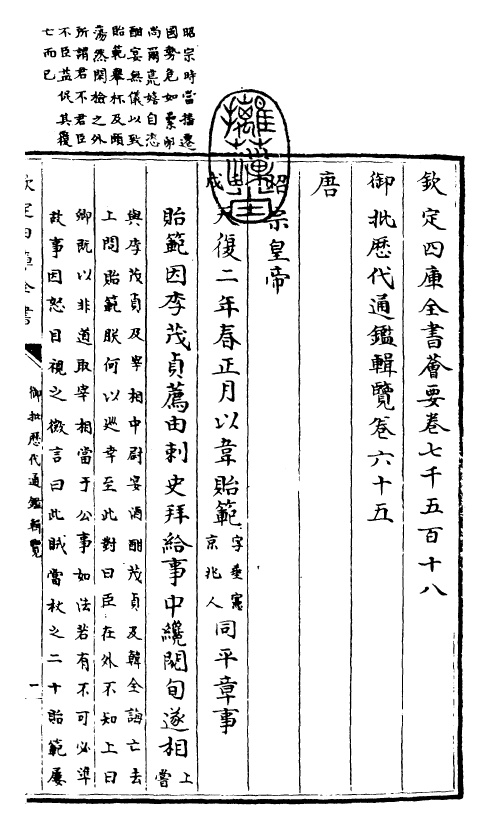 欽定四庫全書薈要卷七千五百十八
御批歷代通鑑輯覽卷六十五
唐
昭宗皇帝
戌天復二年春正月以韋貽範字垂憲京兆人同平章事
貽範因李茂貞薦由刺史拜給事中纔閱旬遂相上嘗
與李茂貞及宰相中尉宴酒酣茂貞及韓全誨亡去
上問貽範朕何以廵幸至此對曰臣在外不知上曰
卿既以非道取宰相當于公事如法若有不可必準
故事因怒目視之微言曰此賊當杖之二十貽範屢
欽定四庫全書
御批歷代通鑑輯覽
一
昭宗時當播遷
國勢危如累卵
尚爾荒嬉自恣
酣宴無儀以致
貽範舉杯及頤
蕩然閑檢之外
所謂君不君臣
不臣益促其覆
亡而已